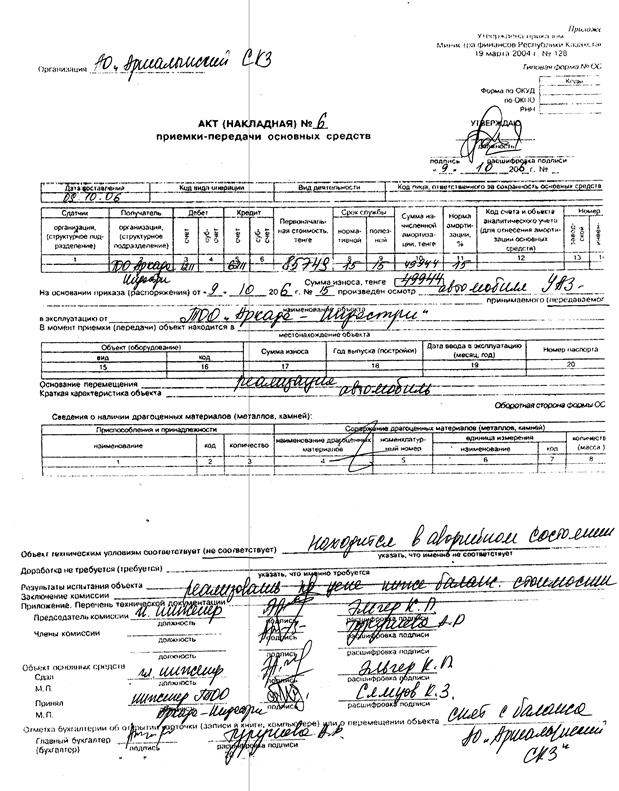 Приложе
Утверждена приказом
Министра финансов Республики Казахстан
19 марта 2004 г. № 128
Организация АО „Аркалыкский СКЗ
Типовая форма № ОС
Коды
Форма по ОКУД
по ОКПО
РНН
АКТ (НАКЛАДНАЯ) № 6
приемки-передачи основных средств
УТВЕРЖДАЮ
должность
подпись расшифровка подписи
« 9 » 10 2006 г. №
Дата составления Код вида операции Вид деятельности Код лица, ответственного за сохранность основных средств
09.10.06
Сдатчик Получатель Дебет Кредит Первоначальная стоимость, тенге Срок службы Сумма начисленной амортизации, тенге Норма амортизации, % Код счета и объекта аналитического учета (для отнесения амортизации основных средств) Номер
организация, (структурное подразделение) организация, (структурное подразделение) счет суб-счет счет суб-счет нормативной полезной завод-ской инвен-
1 3 4 5 6 11 12 13 1
ТОО Аркада 85749 15 15 49944 15
Индастри Сумма износа, тенге 49944
На основании приказа (распоряжения) от « 9 » 10 2006 г. № 15 произведен осмотр автомобиля УАЗ-
наименование объекта принимаемого (передаваемог
в эксплуатацию от ТОО „Аркада – Индастри“
В момент приемки (передачи) объект находится в
местонахождение объекта
Объект (оборудование) Сумма износа Год выпуска (постройки) Дата ввода в эксплуатацию (месяц, год) Номер паспорта
вид код
15 16 17 18 19 20
Основание перемещения реализация
Краткая характеристика объекта автомобиль
Оборотная сторона формы ОС
Сведения о наличии драгоценных материалов (металлов, камней):
Приспособления и принадлежности Содержание драгоценных материалов (металлов, камней)
наименование код количество наименование драгоценных материалов номенклатурный номер единица измерения количеств (масса )
наименование код
1 2 3 4 5 6 7 8
Объект техническим условиям соответствует (не соответствует) находится в аварийном состоянии
указать, что именно не соответствует
Доработка не требуется (требуется)
указать, что именно требуется
Результаты испытания объекта реализовать по цене ниже баланс. стоимости
Заключение комиссии
Приложение. Перечень технической документации
Председатель комиссии гл. инженер Эльгер К.П.
должность подпись расшифровка подписи
Члены комиссии А.Р
должность подпись расшифровка подписи
должность подпись расшифровка подписи
Объект основных средств
Сдал гл. инженер Эльгер К.П.
М.П. должность подпись расшифровка подписи
Принял инженер ТОО К.З.
М.П. Аркада-Индастри подпись расшифровка подписи
Отметка бухгалтерии об открытии карточки (записи в книге, компьютере) или о перемещении объекта снят с баланса
Главный бухгалтер А.Р. АО „Аркалыкский
(бухгалтер) подпись расшифровка подписи СКЗ“